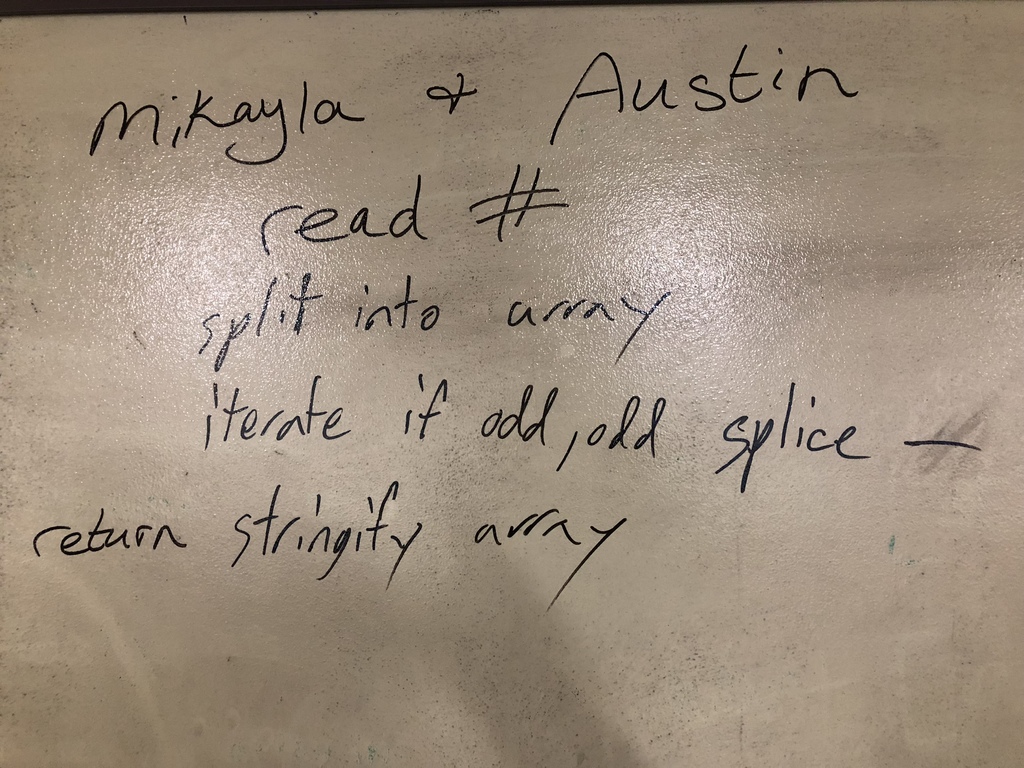 Mikayla & Austin
read #
split into array
iterate if odd, odd splice —
return stringify array